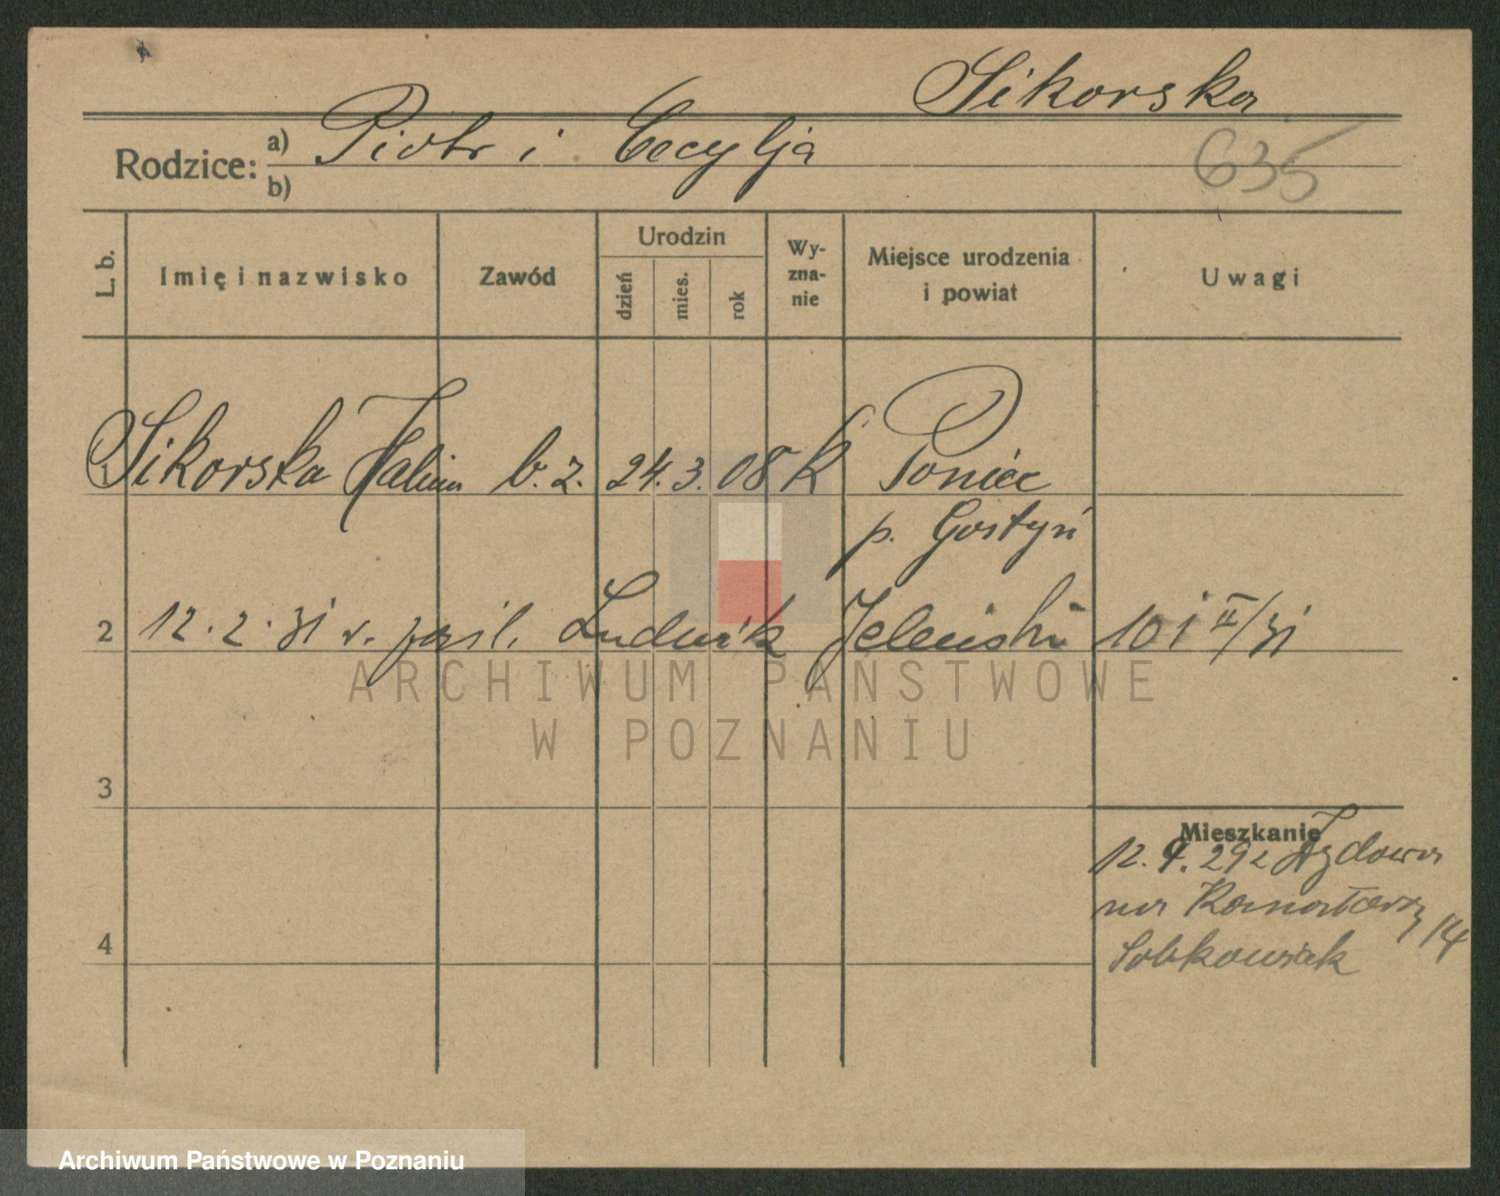 Sikorska
Rodzice: a) Piotr i Cecylja
b)
635
L. b.
Imię i nazwisko
Zawód
Urodzin
dzień
mies.
rok
Wy-
zna-
nie
Miejsce urodzenia
i powiat
Uwagi
1 Sikorska Halina b. z. 24. 3. 08 K Poniec
p. Gostyń
2 12. 2. 31 v. zaśl. Ludwik Jeleński 101 II/31
3
4
Mieszkanie
12. 9. 29 z
14
Sobkowiak
ARCHIWUM PAŃSTWOWE
W POZNANIU
Archiwum Państwowe w Poznaniu